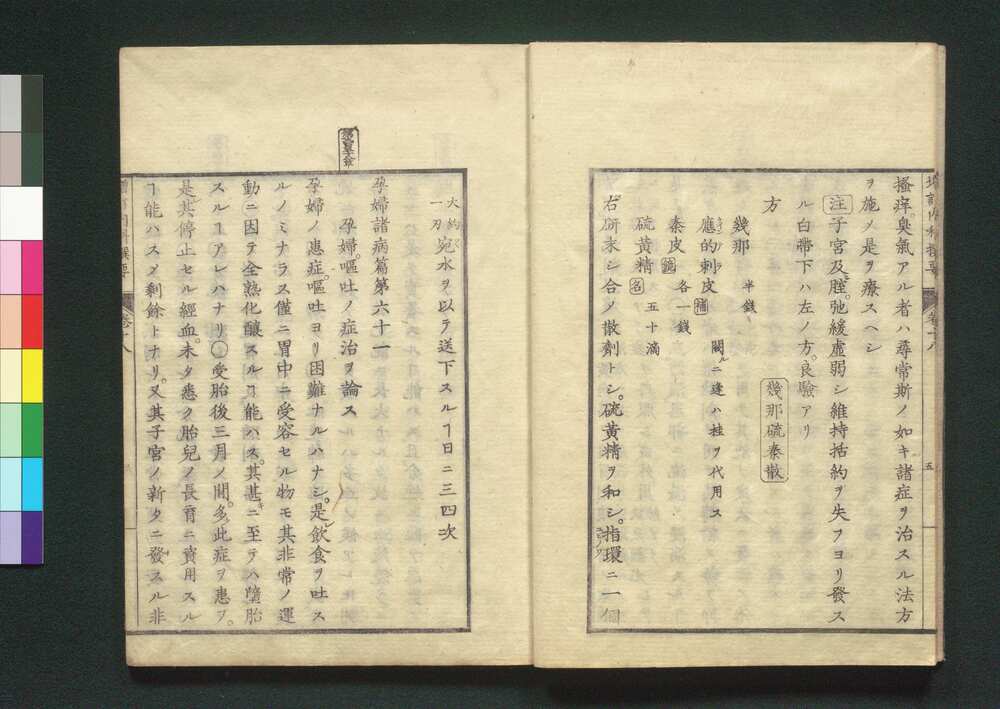 搔痒。臭氣アル者ハ尋常斯ノ如キ諸症ヲ治スル法方
ヲ施メ是ヲ療スヘシ
注子宮及腟。弛緩虚弱シ維持括約ヲ失フヨリ發ス
ル白帶下ハ左ノ方。良驗アリ
方 幾那硫秦散
幾那 半錢
應的刺皮 補 闕ルニ逢ハ桂ヲ代用ス
秦皮 各一錢
硫黃精 名 五十滴
右研末シ合ノ散劑トシ。硫黃精ヲ和シ。指環ニ一個
大約一刃宛水ヲ以テ送下スルヿ日ニ三四次
孕婦諸病篇第六十一
孕婦。嘔吐ノ症治ヲ論ス
孕婦ノ患症。嘔吐ヨリ困難ナルハナシ。是飮食ヲ吐ス
ルノミナラス僅ニ胃中ニ受容セル物モ其非常ノ運
動ニ因テ全熟化釀スルヿ能ハス。其甚ニ至テハ墮胎
スルヿアレハナリ○受胎後三月ノ間。多此症ヲ患フ。
是其停止セル經血。未タ悉ク胎兒ノ長育ニ費用スル
ヿ能ハスメ剩餘トナリ。又其子宮ノ新タニ發スル非